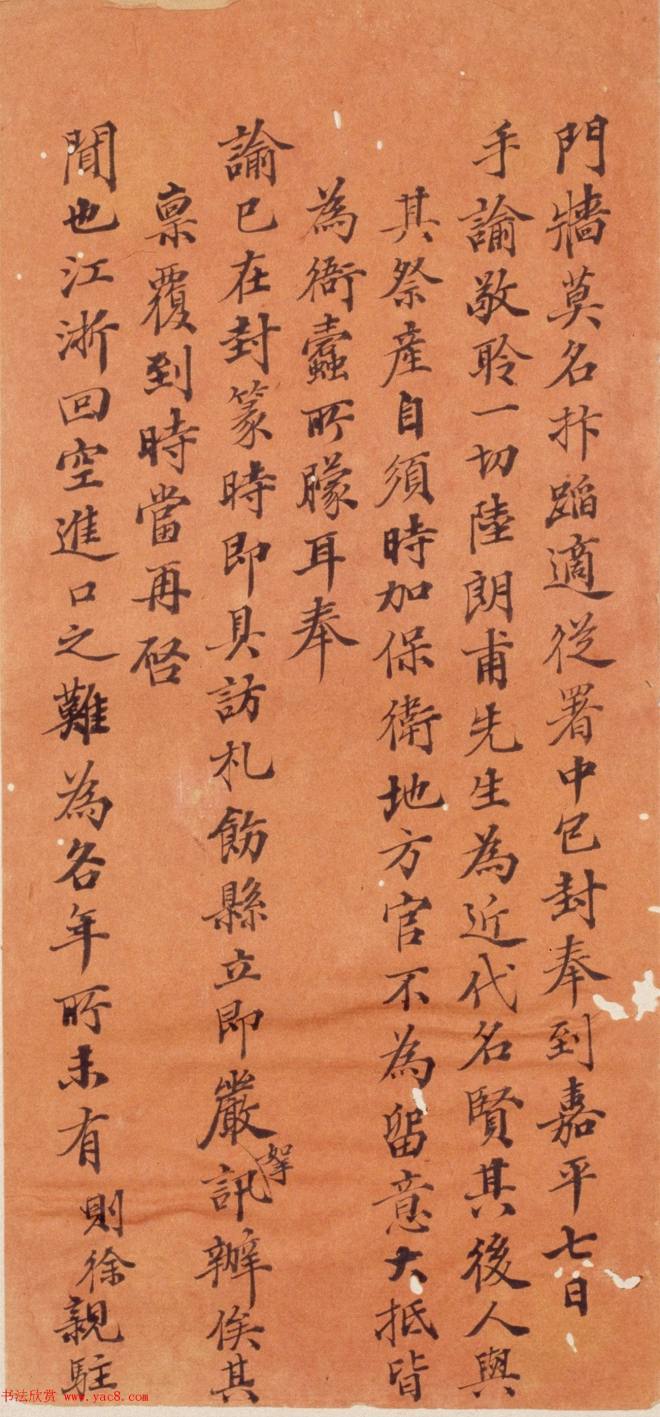 門牆莫名抃蹈適從署中包封奉到嘉平七日
手諭敬聆一切陸朗甫先生為近代名賢其後人與
其祭產自須時加保衛地方官不為留意大抵皆
為衙蠹所朦耳奉
諭已在封篆時即具訪札飭縣立即嚴拏訊辦俟其
稟覆到時當再啓
聞也江浙回空進口之難為各年所未有則徐親駐
书法欣赏 www.yac8.com